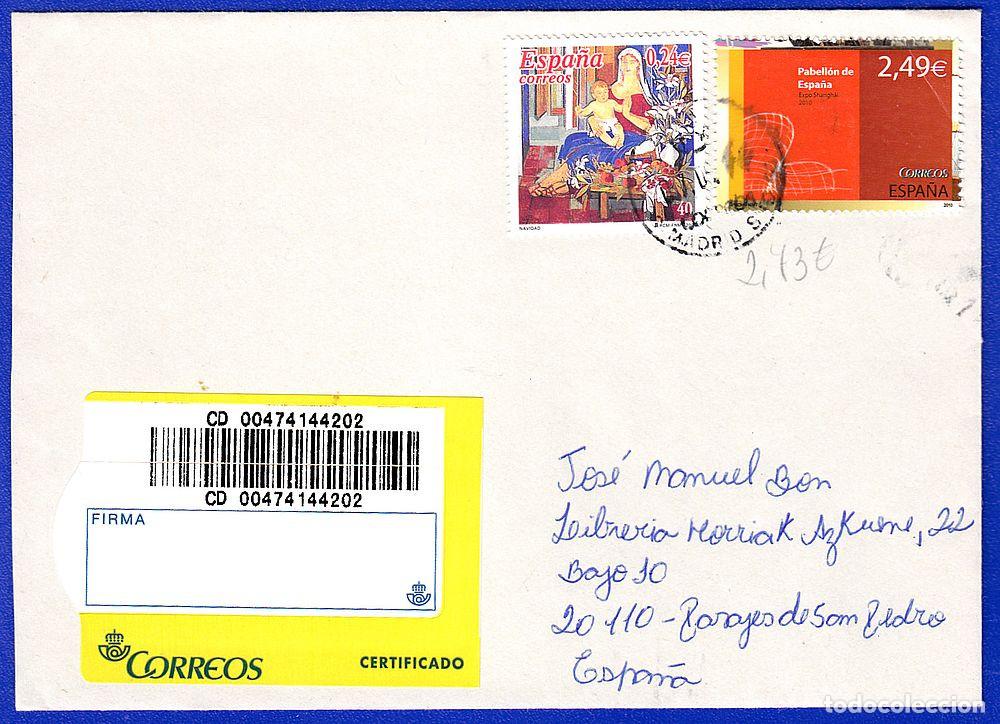 España
correos
0,24€
40
NAVIDAD
Pabellón de
España
Expo Shanghái
2010
2,49€
CORREOS
ESPAÑA
2010
MADRID
2,73€
CD 00474144202
CD 00474144202
FIRMA
CORREOS
CERTIFICADO
José Manuel Bon
Libreria Morriak Azkuene, 22
Bajo 10
20110-Pasajes de San Pedro
España
todocoleccion